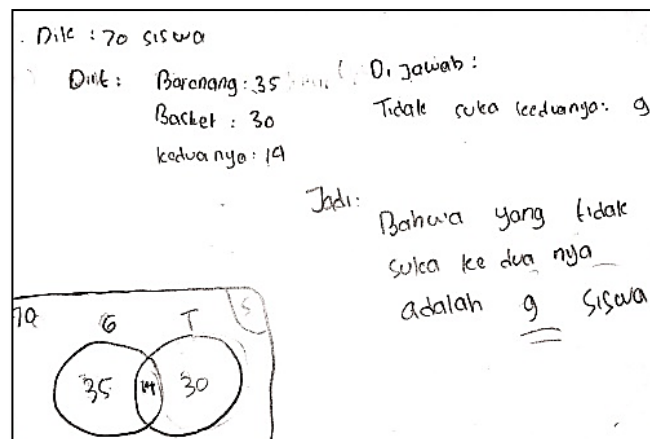 Dik : 70 siswa
Dit : Berenang : 35
Basket : 30
keduanya : 14
Di jawab :
Tidak suka keduanya : 9
Jadi :
Bahwa yang tidak
suka ke dua nya
adalah 9 siswa
70 G T S
35 14 30